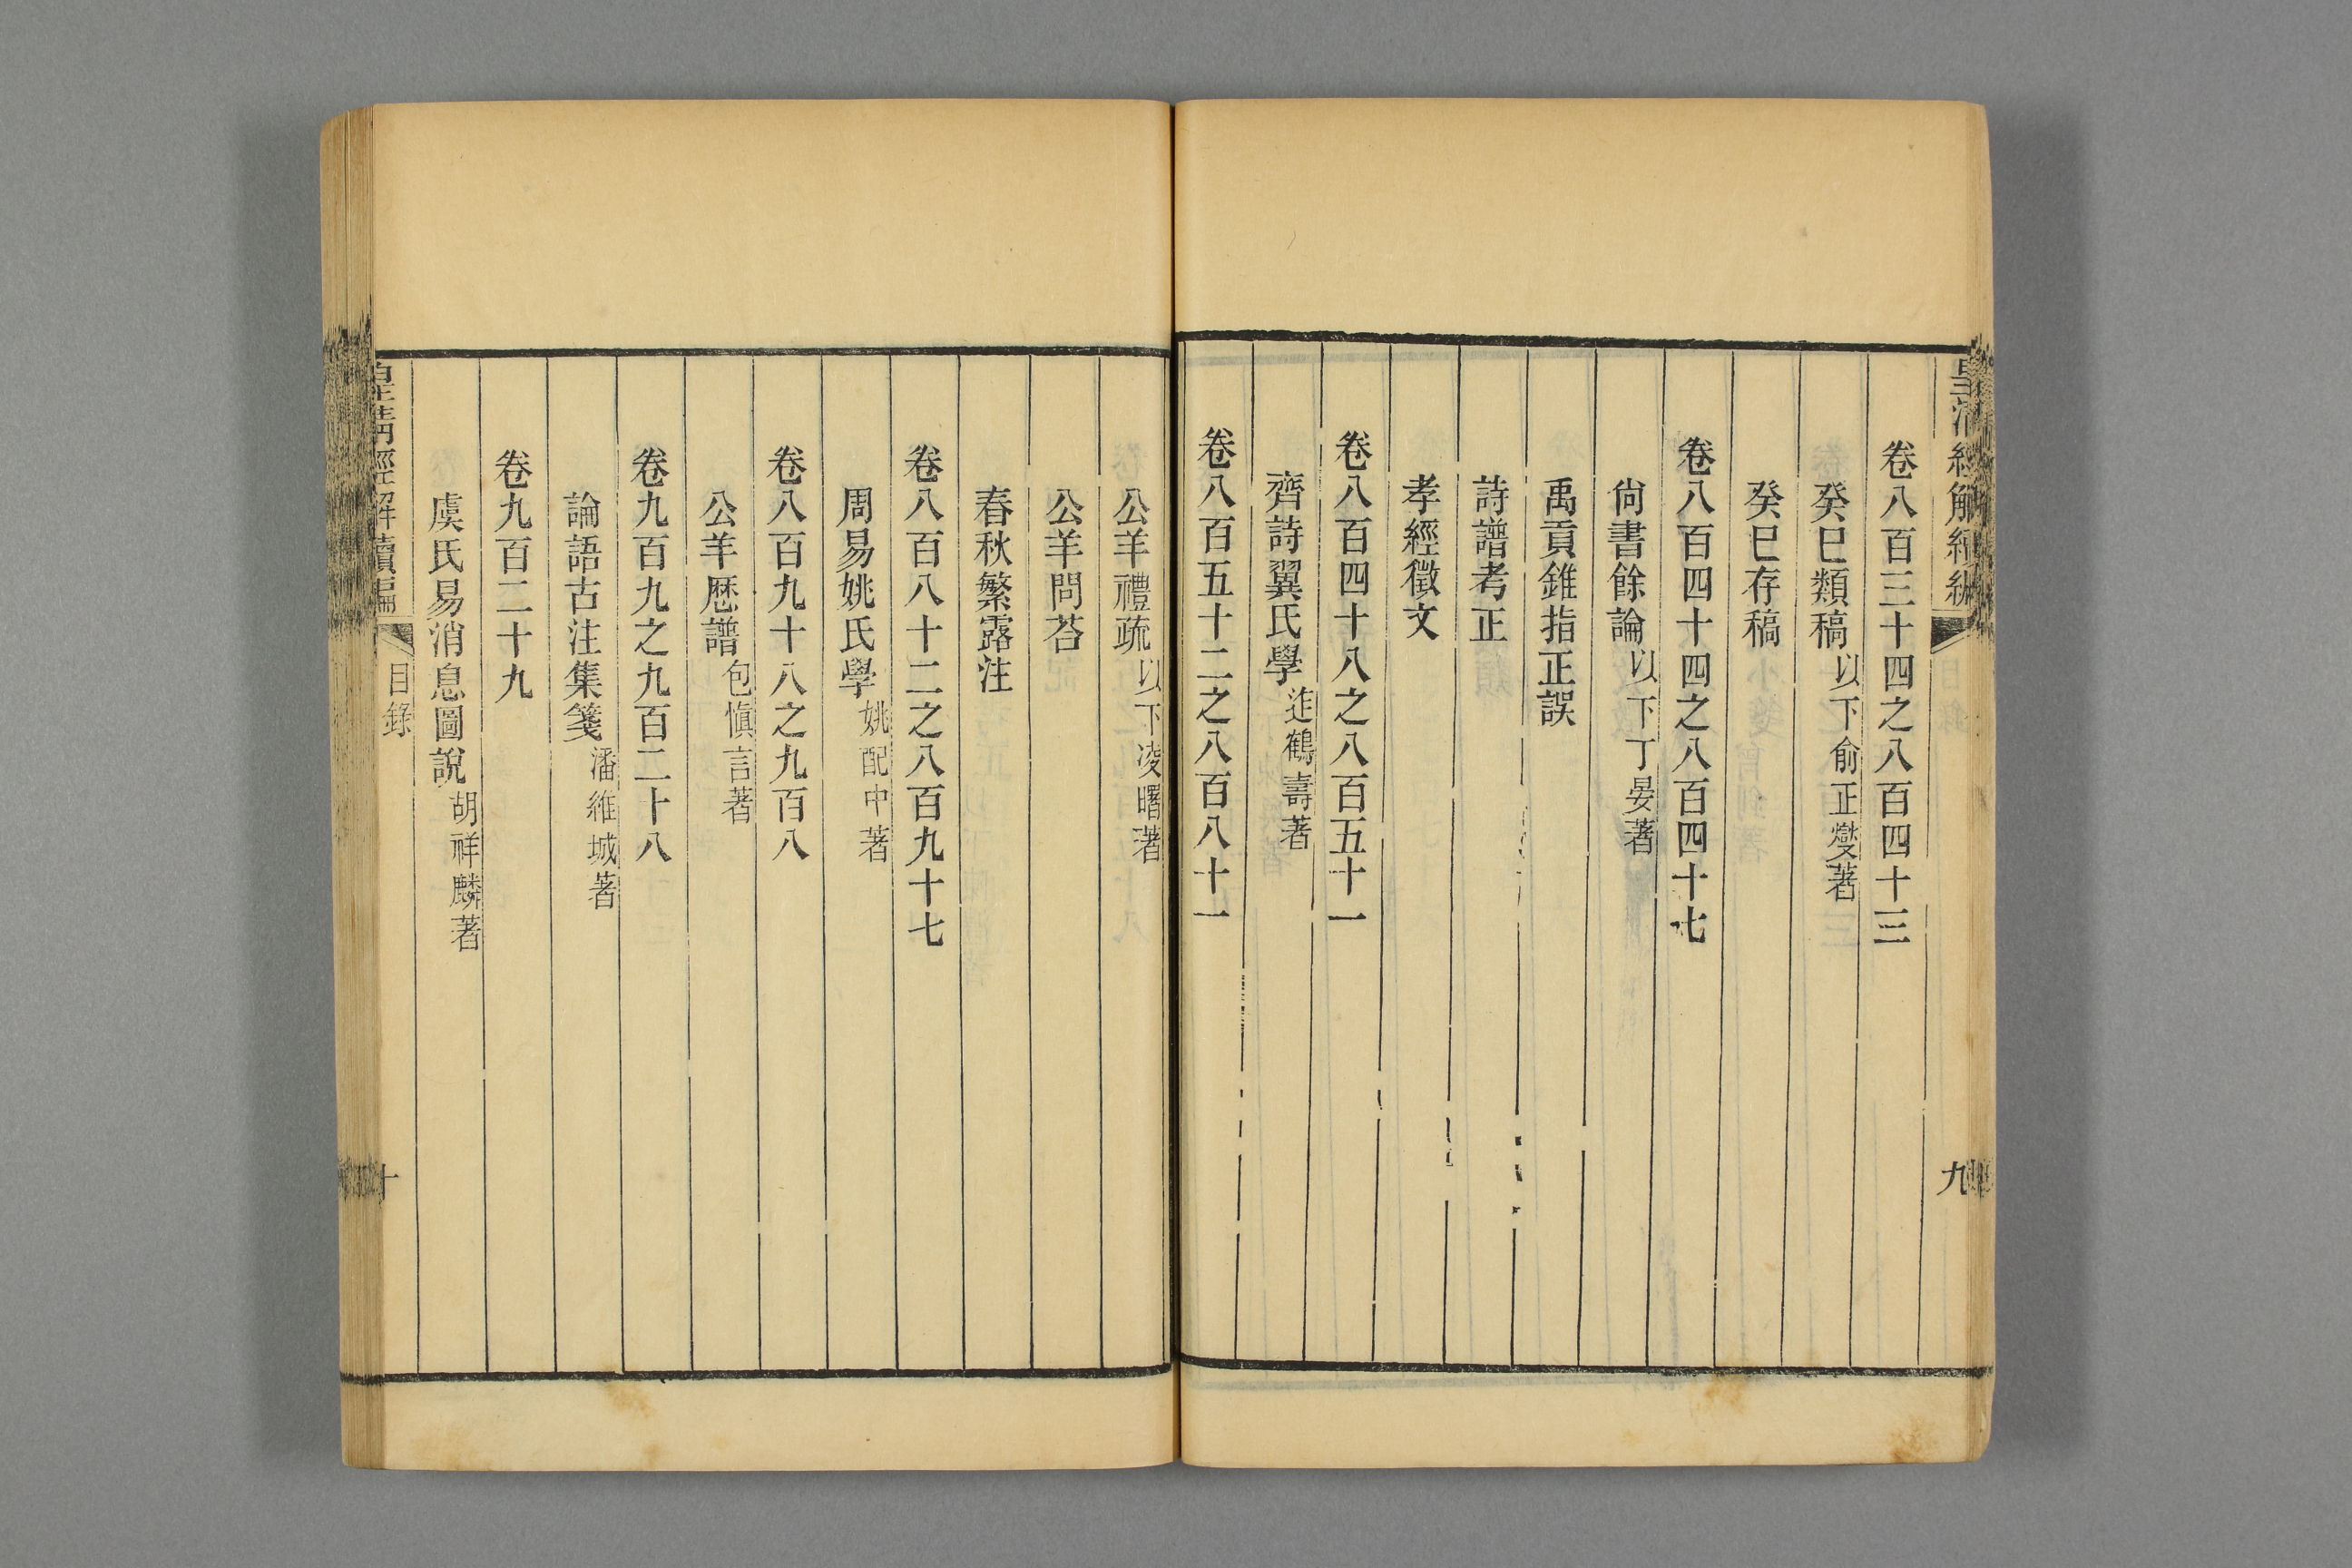 皇清經解續編
九
卷八百三十四之八百四十三
癸巳類稿以下俞正燮著
癸巳存稿
卷八百四十四之八百四十七
尙書餘論以下丁晏著
禹貢錐指正誤
詩譜考正
孝經徵文
卷八百四十八之八百五十一
齊詩翼氏學迮鶴壽著
卷八百五十二之八百八十一
公羊禮疏以下凌曙著
公羊問荅
春秋繁露注
卷八百八十二之八百九十七
周易姚氏學姚配中著
卷八百九十八之九百八
公羊厯譜包愼言著
卷九百九之九百二十八
論語古注集箋潘維城著
卷九百二十九
虞氏易消息圖說胡祥麟著
皇清經解續編 目錄
十